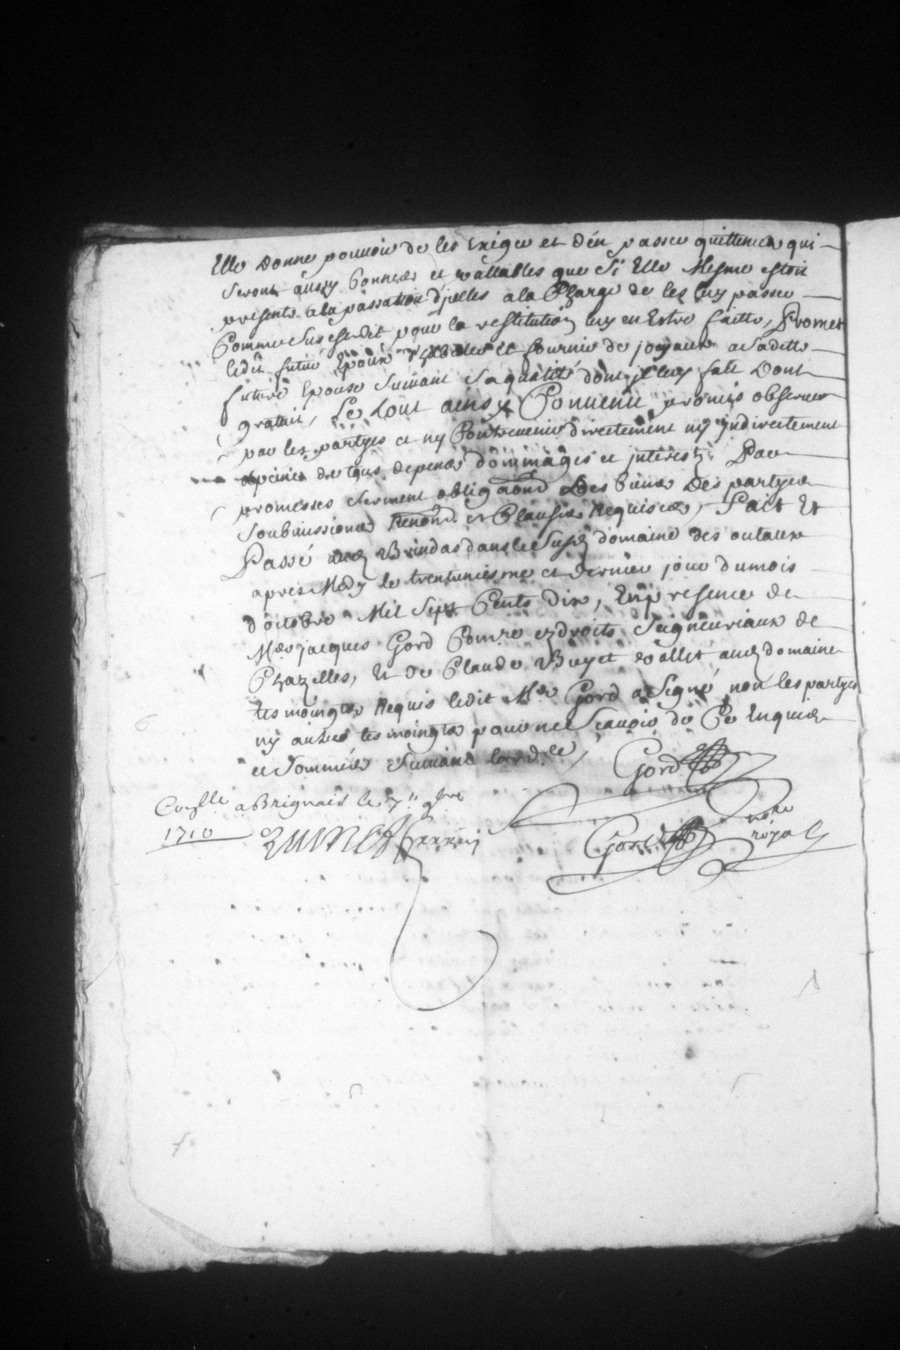 Elle donne pouvoir de les Exiger et d'en passer quittences qui
seront aussy bonnes et vallables que si Elle mesme estoit
presente a la passation d'jcelles a la charge de les luy passer
Comme sus est dit pour la restitution luy en Estre faitte, Promet
ledit futur Epoux et fournir de joyaux a sadette
future Epouse suivant sa qualité dont je luy fait Dont
gratuit, Le tout ainsy Convenu promis observer
par les partyes et ny Contrevenir directement ny jndirectement
apeine de tous depens dommages et jnterests Par
promesses serment obligaons des biens des partyes
soubmissions Renond. et Clauses Requises, Fait Et
Passé aud Brindas dans le susd domaine des outaux
apres Mydy le trentuniesme et dernier jour du mois
d'octobre Mil Sept Cents dix, En presence de
Me jacques Gord Comre ez droits seigneuriaux de
Chazelles, Et de Claude Buyet vallet aud domaine
tesmoingts Requis ledit Me Gord a signé non les partyes
ny autre tesmoingts pour ne sçavoir de Ce Enquis
et sommés suivant lord.ce /
Gord
Conllé a Brignais le 7e 9bre
1710
Gord nore
royal